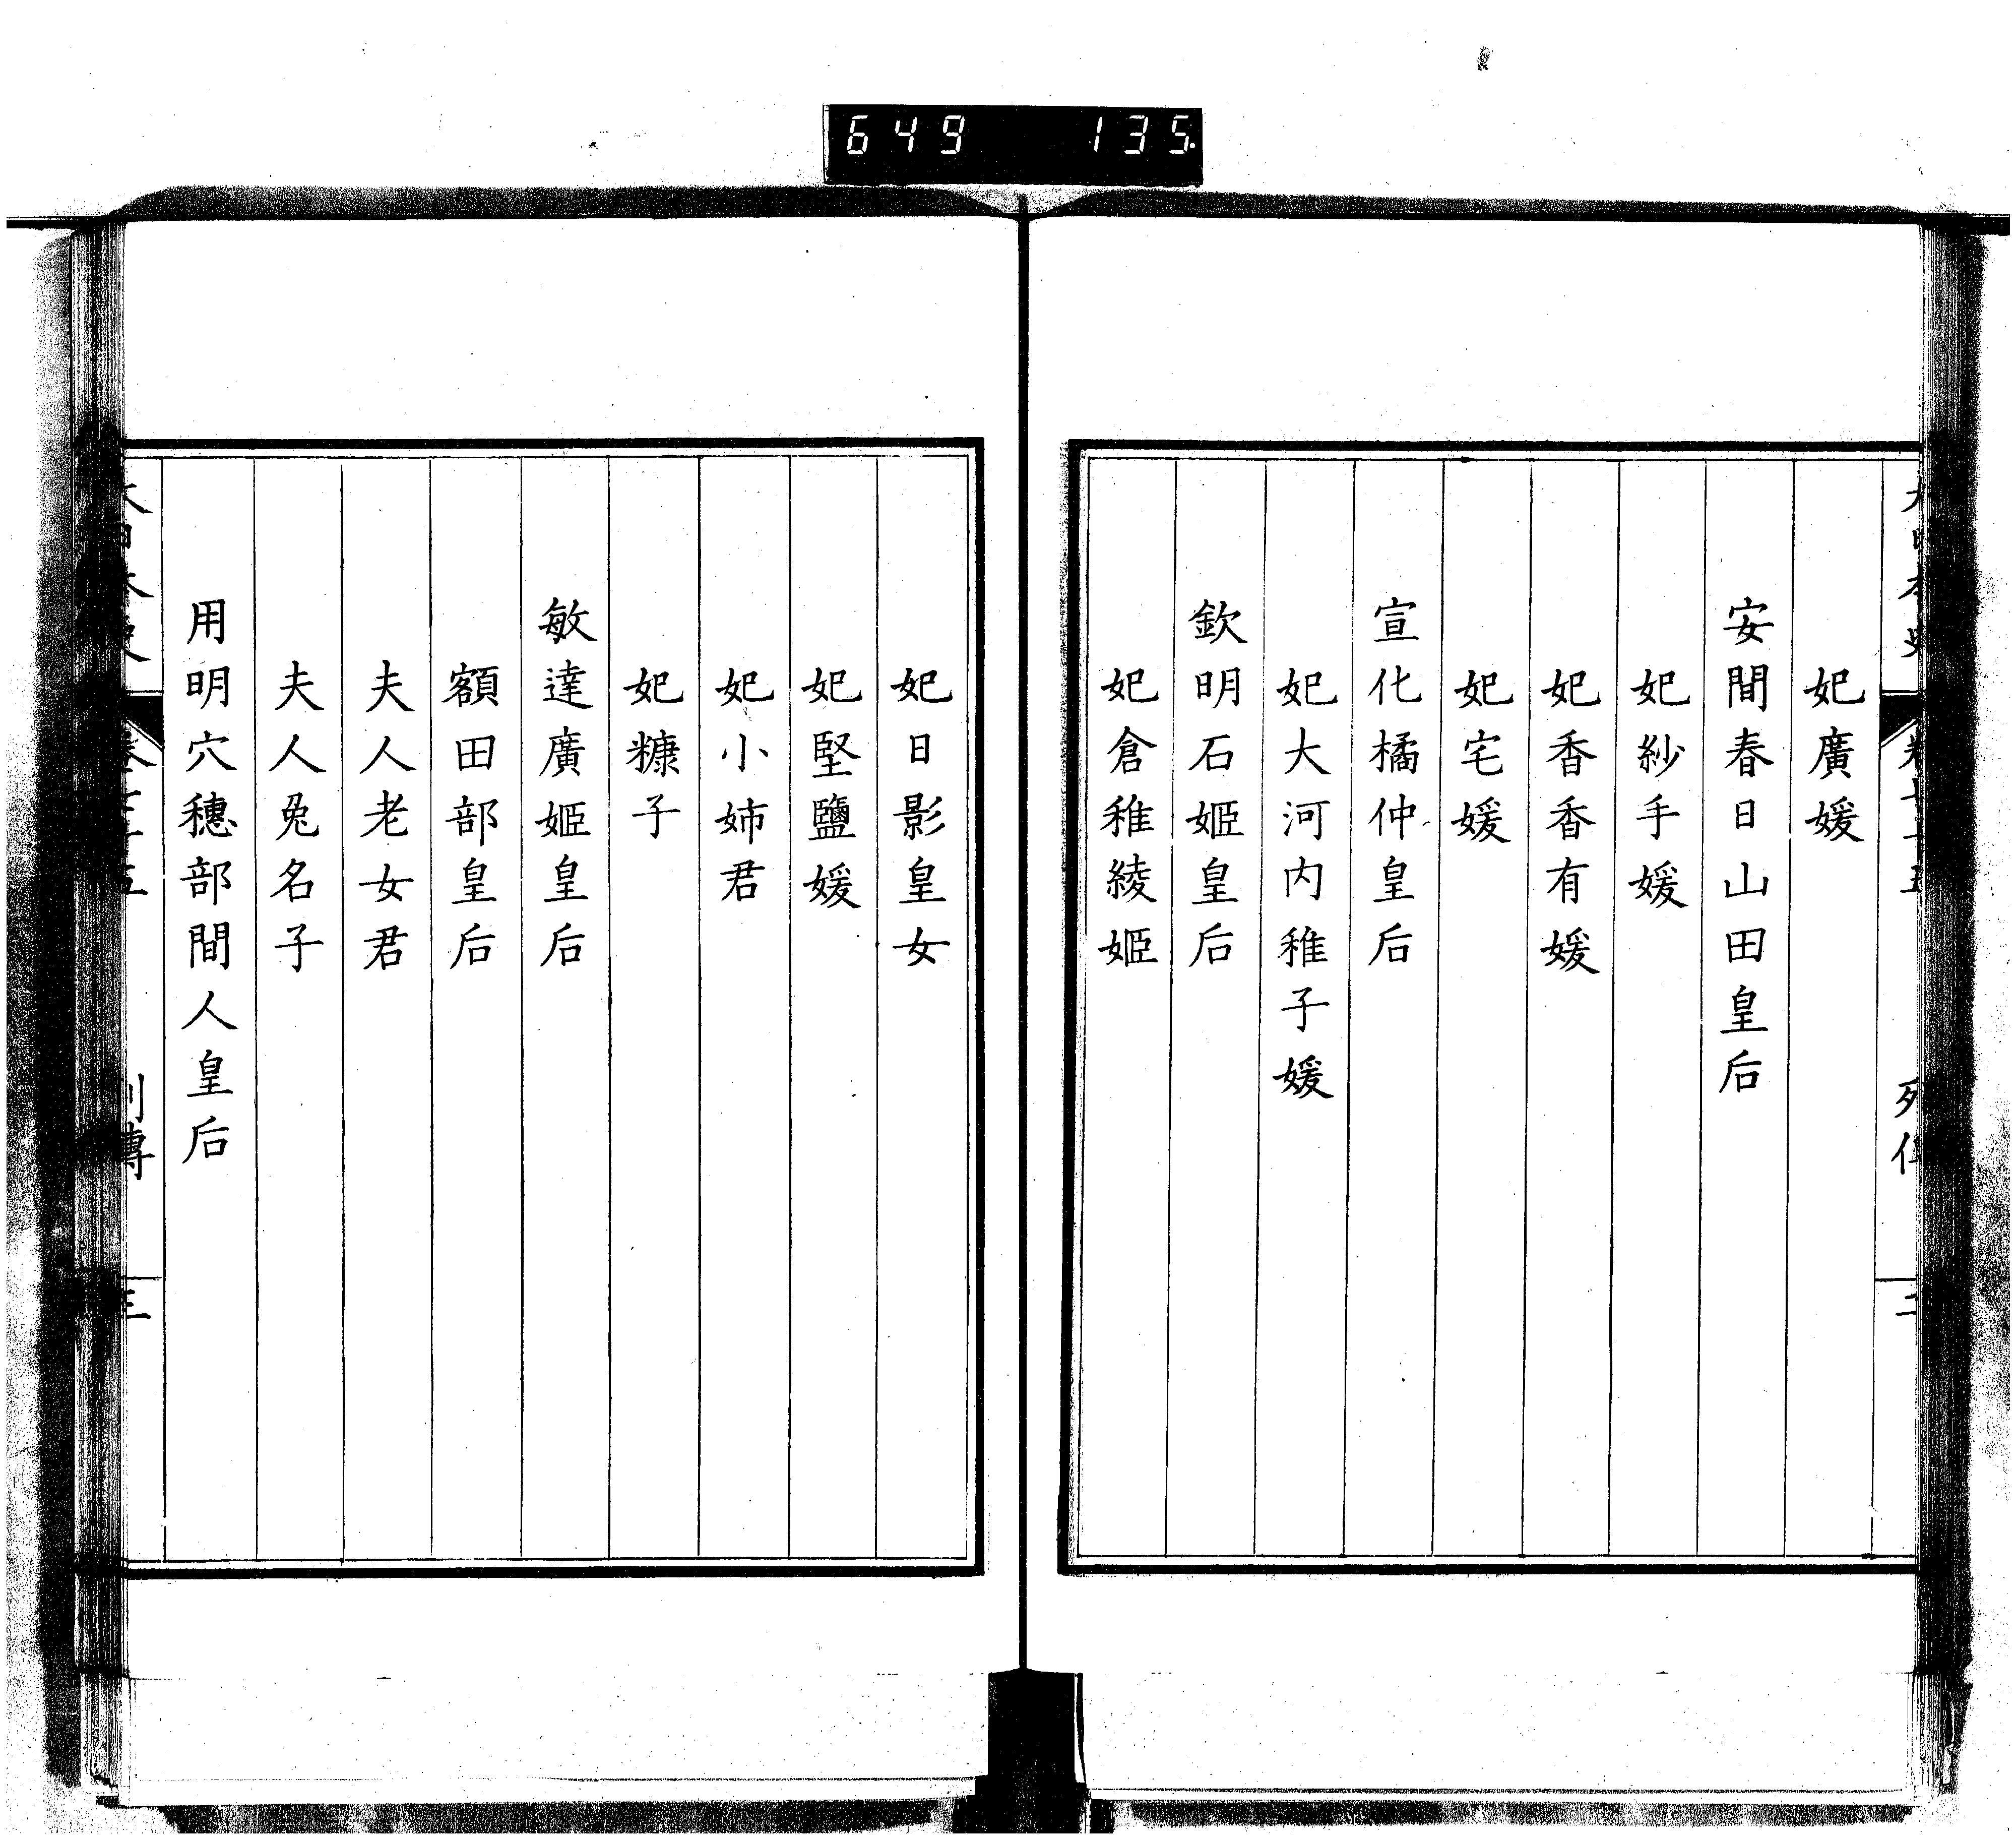 649 135
大日本史 卷七十五 列傳 二
妃廣媛
安閒春日山田皇后
妃紗手媛
妃香香有媛
妃宅媛
宣化橘仲皇后
妃大河内稚子媛
欽明石姬皇后
妃倉稚綾姬
妃日影皇女
妃堅鹽媛
妃小姉君
妃糠子
敏達廣姬皇后
額田部皇后
夫人老女君
夫人兔名子
用明穴穗部間人皇后
大日本史 卷七十五 列傳 三